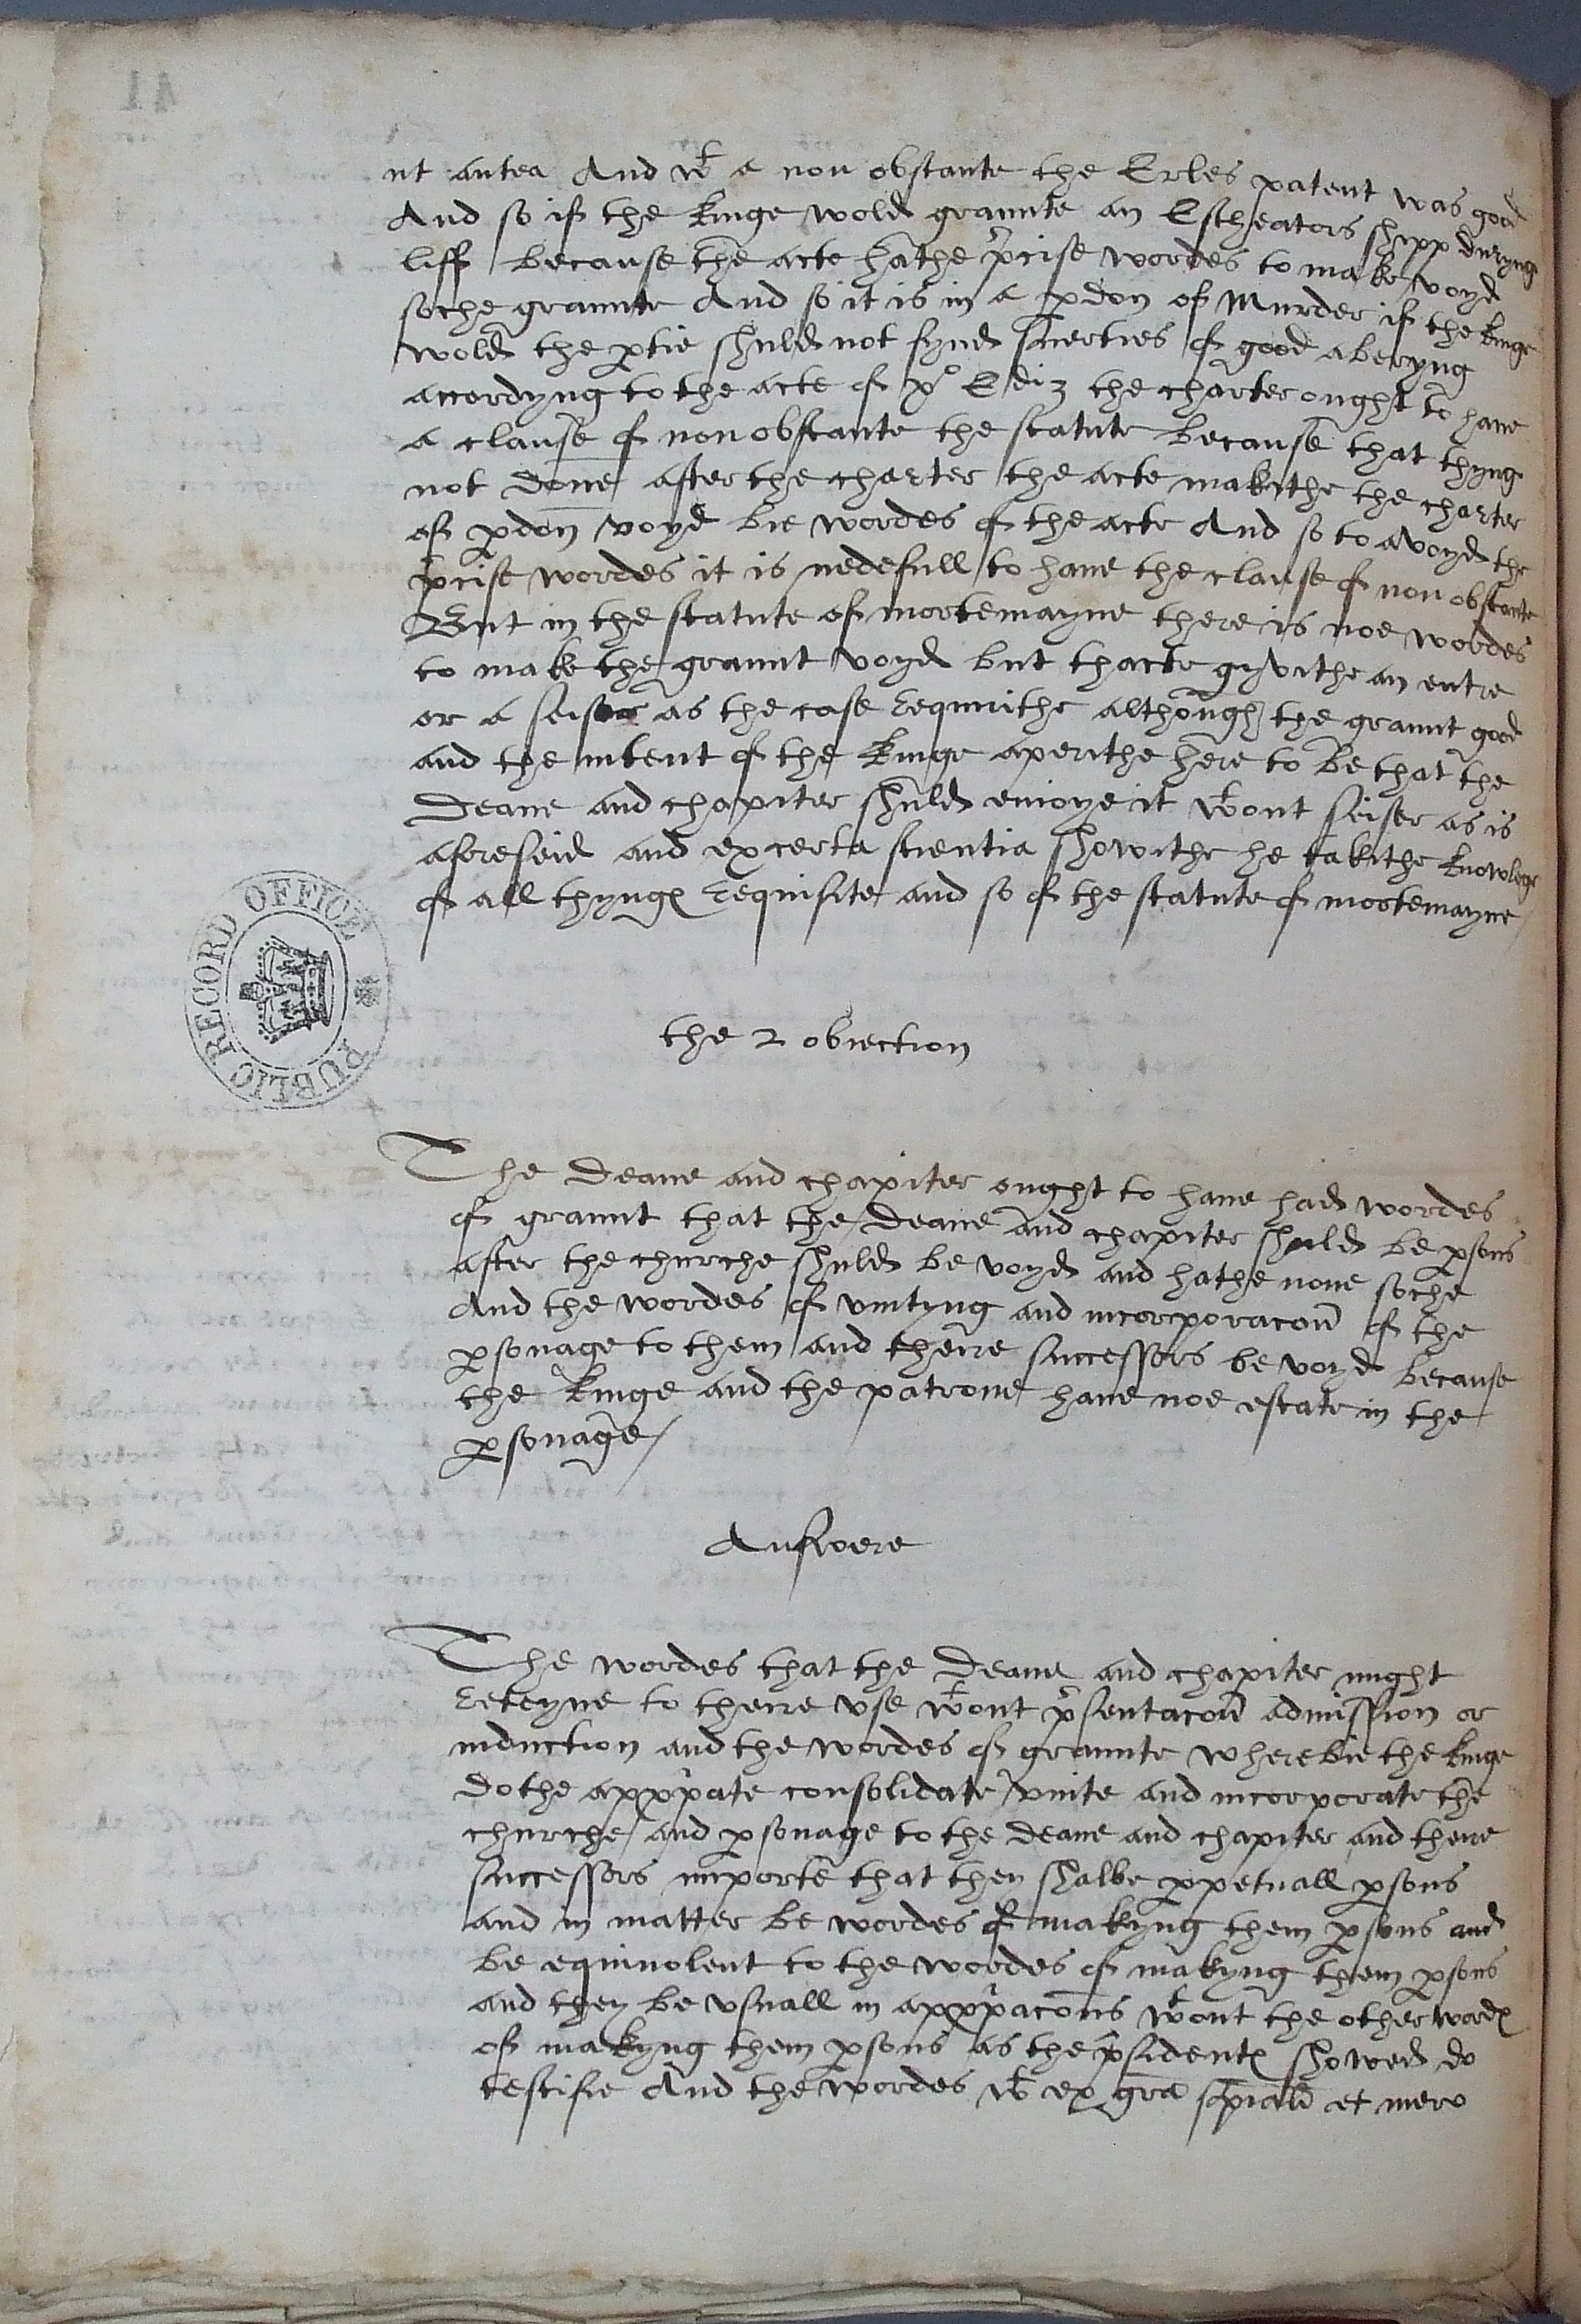 41
ut antea And wt a non obstante the Erles patent was good
And so if the kinge wold graunte an Escheators shipp duryng
liff because the acte hathe pcise wordes to make voyd
soche graunte And so it is in a pdon of Murder if the kinge
wold the ptie shuld not fynd suerties of good aberyng
accordyng to the acte of xo E diz the charter ought to haue
a clause of non obstante the statute because that thyng
not done after the charter the acte makithe the charter
of pdon voyd bie wordes of the acte And so to avoyd the
pcise wordes it is nedefull to haue the clause of non obstante
But in the statute of mortemayne there is noe wordes
to make the graunt voyd but thacte gyvithe an entre
or a seiser as the case requirithe although the graunt good
and the intent of the kinge aperithe here to be that the
Deane and chapiter shuld enioye it wtout seiser as is
aforeseid and ex certa scientia showithe he takithe knowlege
of all thynges requisite and so of the statute of mortemayne
PUBLIC RECORD OFFICE
the 2 obiection
The Deane and chapiter ought to haue had wordes
of graunt that the Deane and chapiter shuld be psons
after the churche shuld be voyd and hathe none soche
And the wordes of vnityng and incorporacon of the
psonage to them and theire successors be voyd because
the kinge and the patrone haue noe estate in the
psonage
Answere
The wordes that the Deane and chapiter might
reteyne to theire vse wtout psentacon admission or
induction and the wordes of graunte wherebie the kinge
dothe apppate consolidate vnite and incorporate the
churche and psonage to the deane and chapiter and theire
successors importe that they shalbe ppetuall psons
and in matter be wordes of makyng them psons and
be equiuolent to the wordes of makyng them psons
and they be vsuall in apppacons wtout the other wordes
of makyng them psons as the psidentes showed do
testifie And the wordes wt ex gra spiali et mero